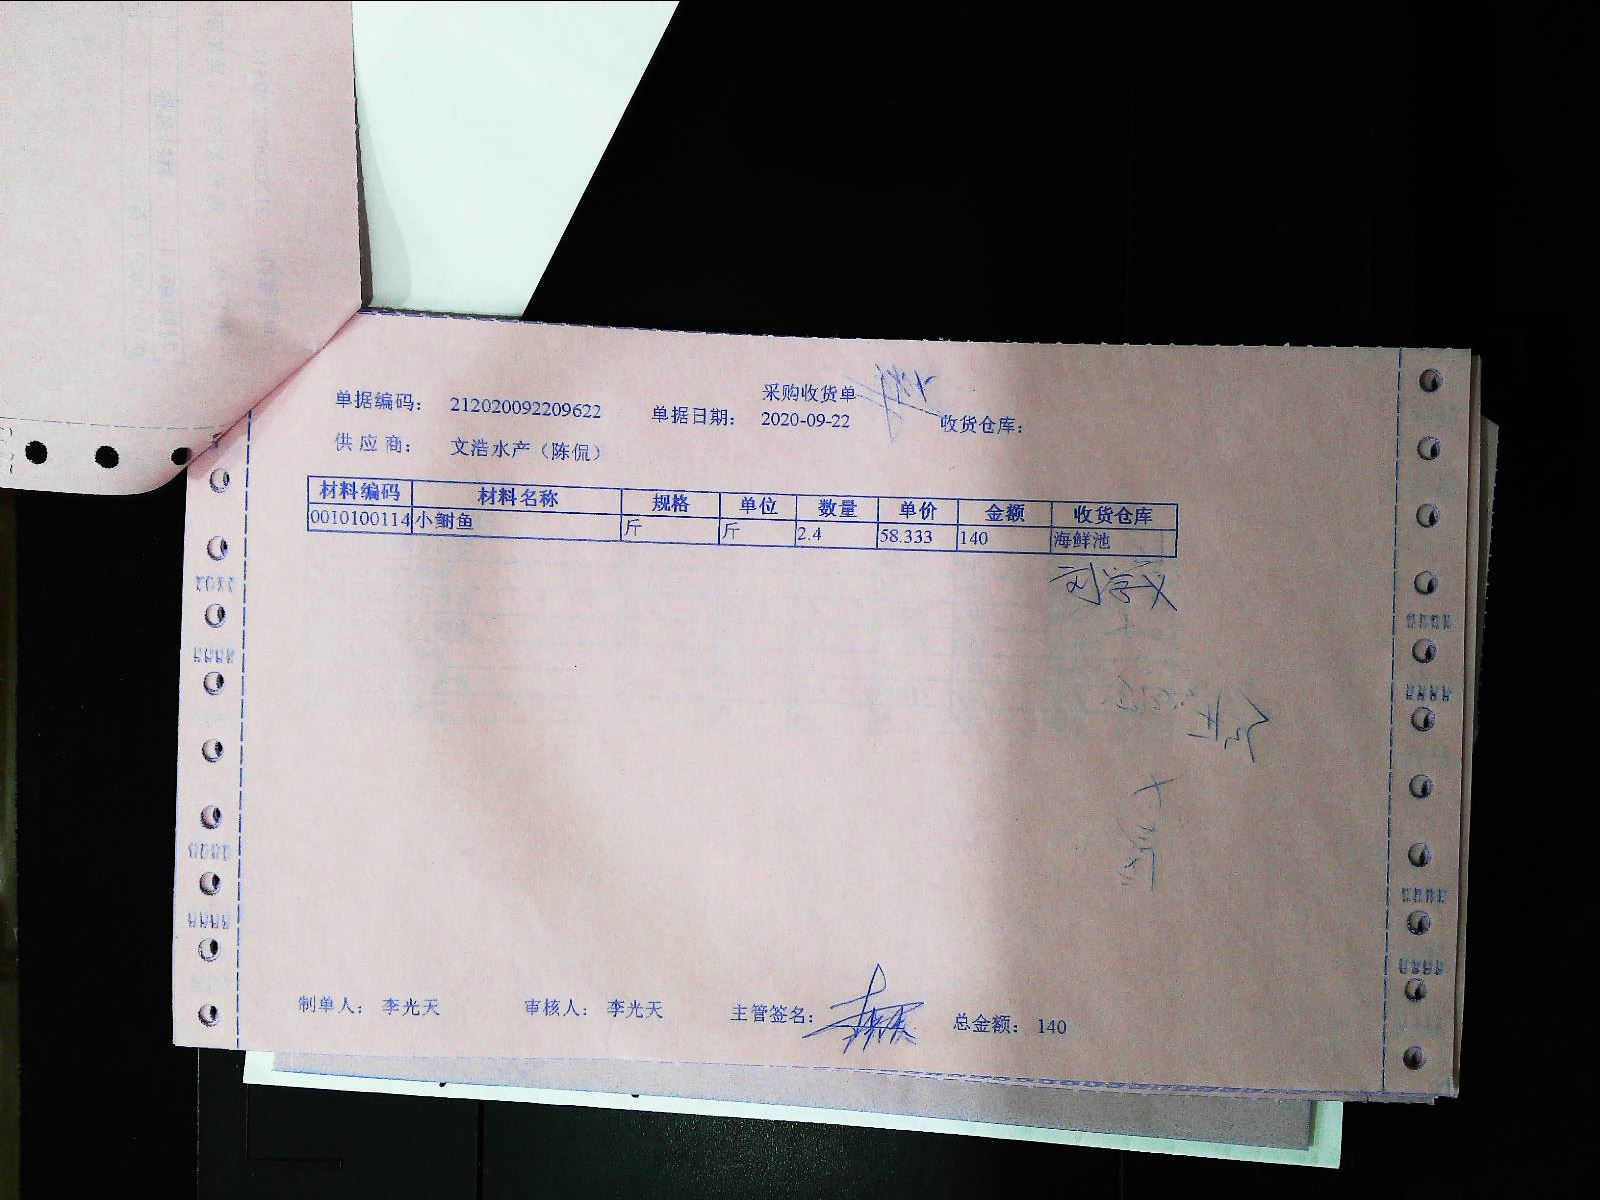 采购收货单
单据编码： 212020092209622 单据日期： 2020-09-22 收货仓库：
供 应 商： 文浩水产（陈侃）
材料编码 材料名称 规格 单位 数量 单价 金额 收货仓库
0010100114 小鲥鱼 斤 斤 2.4 58.333 140 海鲜池
刘学义
制单人： 李光天 审核人： 李光天 主管签名： 总金额： 140